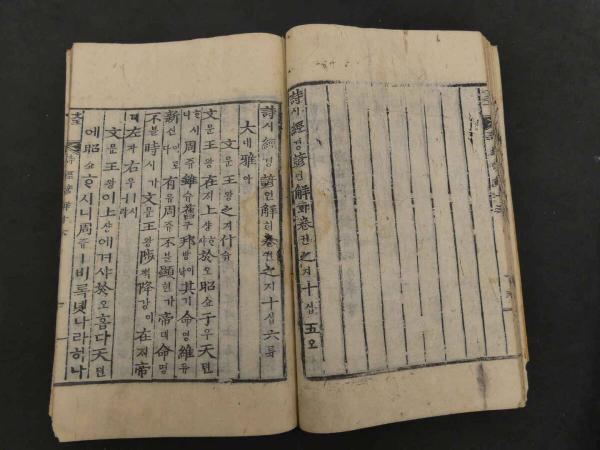 詩시經경諺언解ᄒᆡ卷권之지十십五오
詩시經경諺언解ᄒᆡ卷권之지十십六륙
大대雅아
文문王왕之지什십
文문王왕在ᄌᆡ上샹ᄒᆞ샤於오昭쇼于우天텬
ᄒᆞ시니周쥬雖슈舊구邦방이나其기命명維유
新신이로다有유周쥬不블顯현가帝뎨命명
不블時시가文문王왕陟쳑降강이在ᄌᆡ帝뎨
左좌右우ㅣ시니라
文문王왕이上샹에겨샤於오홉다天텬
에昭쇼ᄒᆞ시니周쥬ㅣ비록녯나라히나
詩經諺解十六